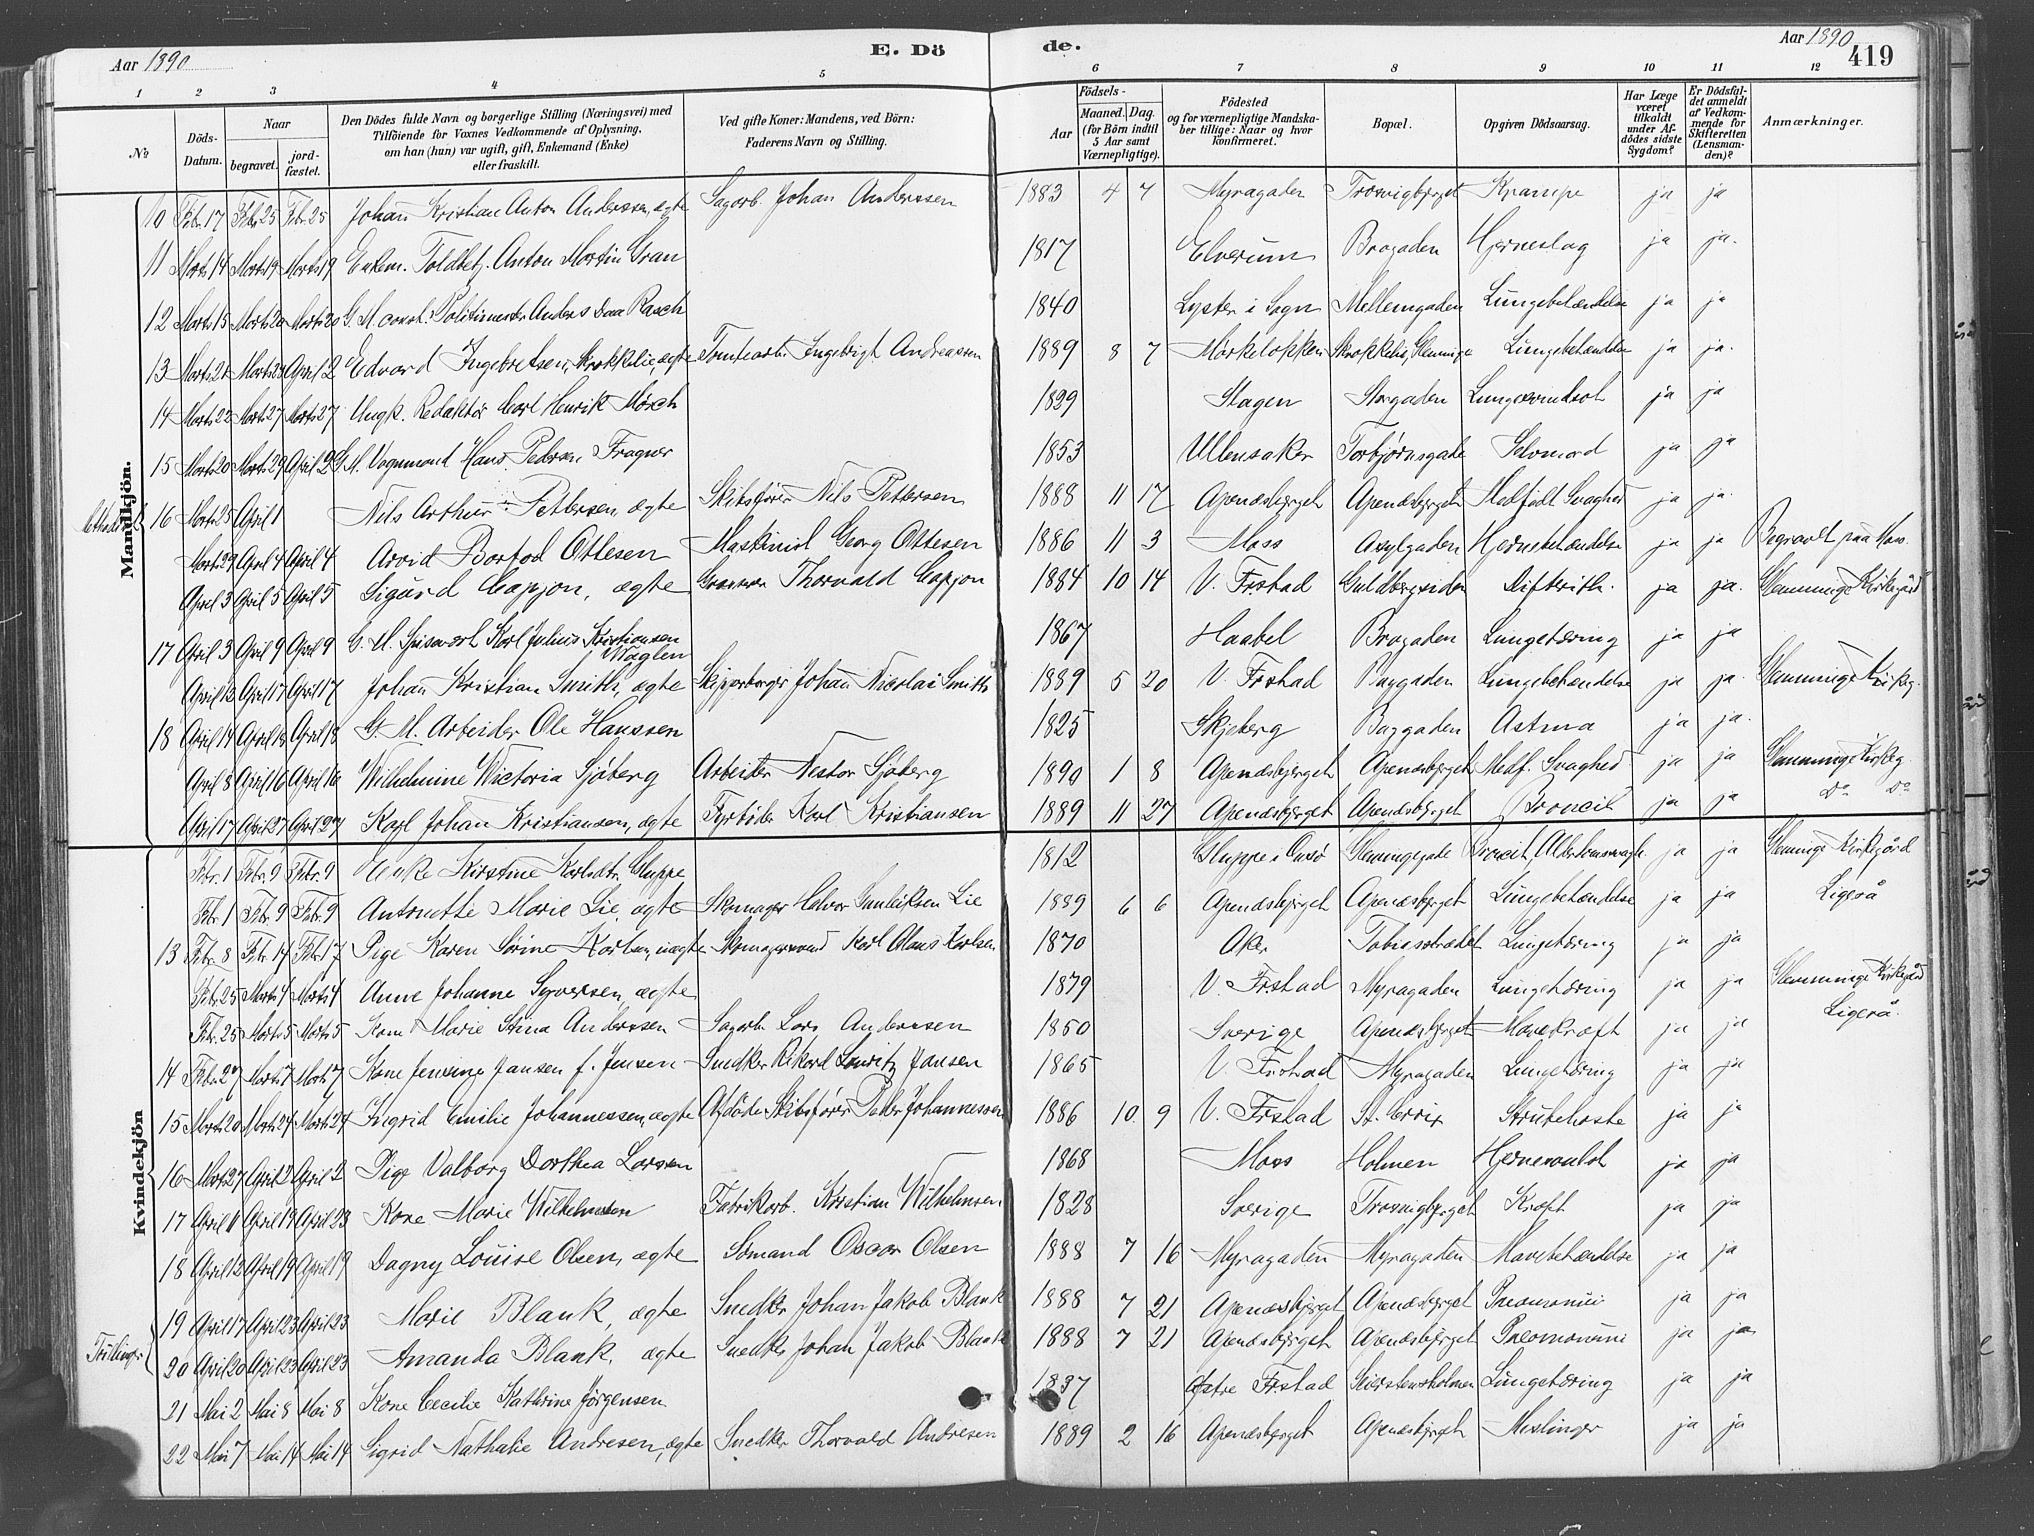 Aar 1890
E. Dö
de.
Aar 1890
419
1 2 3 4 5 6 7 8 9 10 11 12
No
Döds-Datum.
Naar
begravet.
jord-fæstet.
Den Dödes fulde Navn og borgerlige Stilling (Næringsvei) med
Tilföiende for Voxnes Vedkommende af Oplysning,
om han (hun) var ugift, gift, Enkemand (Enke)
eller fraskilt.
Ved gifte Koner: Mandens, ved Börn:
Faderens Navn og Stilling.
Födsels-
Aar
Maaned. Dag.
(for Börn indtil
5 Aar samt
Værnepligtige).
Födested
og for værnepligtige Mandska-
ber tillige: Naar og hvor
konfirmeret.
Bopæl.
Opgiven Dödsaarsag.
Har Læge
været
tilkaldt
under Af-
dödes sidste
Sygdom?
Er Dödsfal-
det anmeldt
af Vedkom-
mende for
Skifteretten
(Lensman-
den)?
Anmærkninger.
Mandkjön.
10 Febr. 17 Febr 25 Febr. 25 Johan Kristian Anton Anderssen, ægte Sagarb. Johan Anderssen 1883 4 7 Myragaden Trosvigbjerget Krampe ja ja
11 Marts 14 Marts 19 Marts 19 Enkem. Toldbetj. Anton Martin Gran 1817 Elverum Brogaden Hjerneslag ja ja.
12 Marts 15 Marts 20 Marts 20 G. M. const. Politimester Anders Daa Rasch 1840 Lyster i Sogn Mellemgaden Lungebetændelse ja ja
13 Marts 21 Marts April 2 Edvard Ingebretsen, ægte Tomtearb. Ingebrigt Andreassen 1889 8 7 Mørkeløkken Glemminge Lungebetændelse ja ja.
14 Marts 22 Marts 27 Marts 27 Ungk. Redaktør Carl Henrik Mørch 1829 Storgaden ja ja
15 Marts 20 Marts 29 April 2 G. M. Vognmand Hans Pedersen Fragner 1853 Ullensaker Torbjørnsgade Selvmord ja ja
16 Marts 25 April 1 Nils Arthur Pettersen, ægte Skibsfører Nils Pettersen 1888 11 17 Apenæsbjerget Apenæsbjerget Medfødt Svaghed ja ja.
Marts 29 April 4 April 4 Arvid Ottesen Maskinist Georg Ottesen 1886 11 3 Moss Asylgaden Hjernebetændelse ja ja Begravet paa Moss
April 3 April 5 April 5 Sigurd Capjon, ægte Thorvald Capjon 1884 10 14 V. Frstad Difterith. ja ja. Glemminge Kirkegård
17 April 3 April 9 April 9 G. M. Karl Julius Kristiansen Waglen 1867 Haabøl Brogaden Lungetæring ja ja
April 13 April 17 April 17 Johan Kristian Smith, ægte Johan Nicolai Smith 1889 5 20 V. Frstad Baggaden Lungebetændelse ja ja. Glemminge Kirkeg.
18 April 14 April 18 April 18 G. M. Arbeider Ole Hanssen 1825 Skjeberg Baggaden Astma ja ja.
April 8 April 16 April 16 Wilhelmine Wictoria Sjöberg Arbeider Nestor Sjöberg 1890 1 8 Apenæsbjerget Apenæsbjerget Medf. Svaghed ja ja Glemminge Kirkeg.
April 17 April 27 April 27 Karl Johan Kristiansen, ægte Fyrbøder Karl Kristiansen 1889 11 27 Apenæsbjerget Apenæsbjerget Broncit ja ja Do Do
Kvindekjön
Febr. 1 Febr. 9 Febr. 9 Enke Kirstine Karlsdtr. Gluppe 1812 Gluppe i Onsø Glemmingegade Broncit, Alderdomssvagh. ja ja Glemminge Kirkegård
Febr. 1 Febr. 9 Febr. 9 Antonette Marie Lie, ægte Skomager Halvor Gulliksen Lie 1889 6 6 Apenæsbjerget Apenæsbjerget Lungebetændelse ja ja Ligeså
13 Febr. 8 Febr. 14 Febr 17 Pige Karen Sørine Karlsen, uægte Skomagersvend Karl Olaus Karlsen 1870 Aker Tobiasstrædet Lungetæring ja ja
Febr. 25 Marts 4 Marts 4 Anne Johanne Syversen, ægte 1879 V. Frstad Myragaden Lungetæring ja ja Glemminge Kirkegård
Febr. 25 Marts 5 Marts 5 Kone Marie Stina Anderssen Sagarb. Lars Anderssen 1850 Sverige Apenæsbjerget Mavekræft ja ja Ligeså.
14 Febr. 27 Marts 7 Marts 7 Kone Jensine Jansen f. Jensen Snedker Rikard Lauritz Jansen 1865 V. Frstad Myragaden Lungetæring ja ja
15 Marts 20 Marts 24 Marts 24 Ingrid Emilie Johannessen, ægte Afdøde Skibsfører Peder Johannessen 1886 10. 9 V. Frstad St. Croix Strubehoste ja ja
16 Marts 27 April 2 April 2 Pige Valborg Dorthea Larsen 1868 Moss Holmen ja ja
17 April 11 April 19 April 23 Kone Marie Wilhelmsen Fabrikarb. Kristian Wilhelmsen 1828 Sverige Trosvigbjerget Kræft ja ja
18 April 12 April 19 April 19 Dagny Louise Olsen, ægte Sømand Oscar Olsen 1888 7 16 Myragaden Myragaden Mavebetændelse ja ja
Tvillinger
19 April 17 April 23 April 23 Marie Blank, ægte Snedker Johan Jakob Blank 1888 7 21 Apenæsbjerget Apenæsbjerget ja ja
20 April 20 April 23 April 23 Amanda Blank, ægte Snedker Johan Jakob Blank 1888 7 21 Apenæsbjerget Apenæsbjerget ja ja
21 Mai 2 Mai 8 Mai 8 Kone Cecilie Kathrine Jørgensen 1837 Østre Frstad Lungetæring ja ja
22 Mai 7 Mai 14 Mai 14 Sigrid Nathalie Andresen, ægte Snedker Thorvald Andresen 1889 2 16 Apenæsbjerget Apenæsbjerget Meslinger ja ja